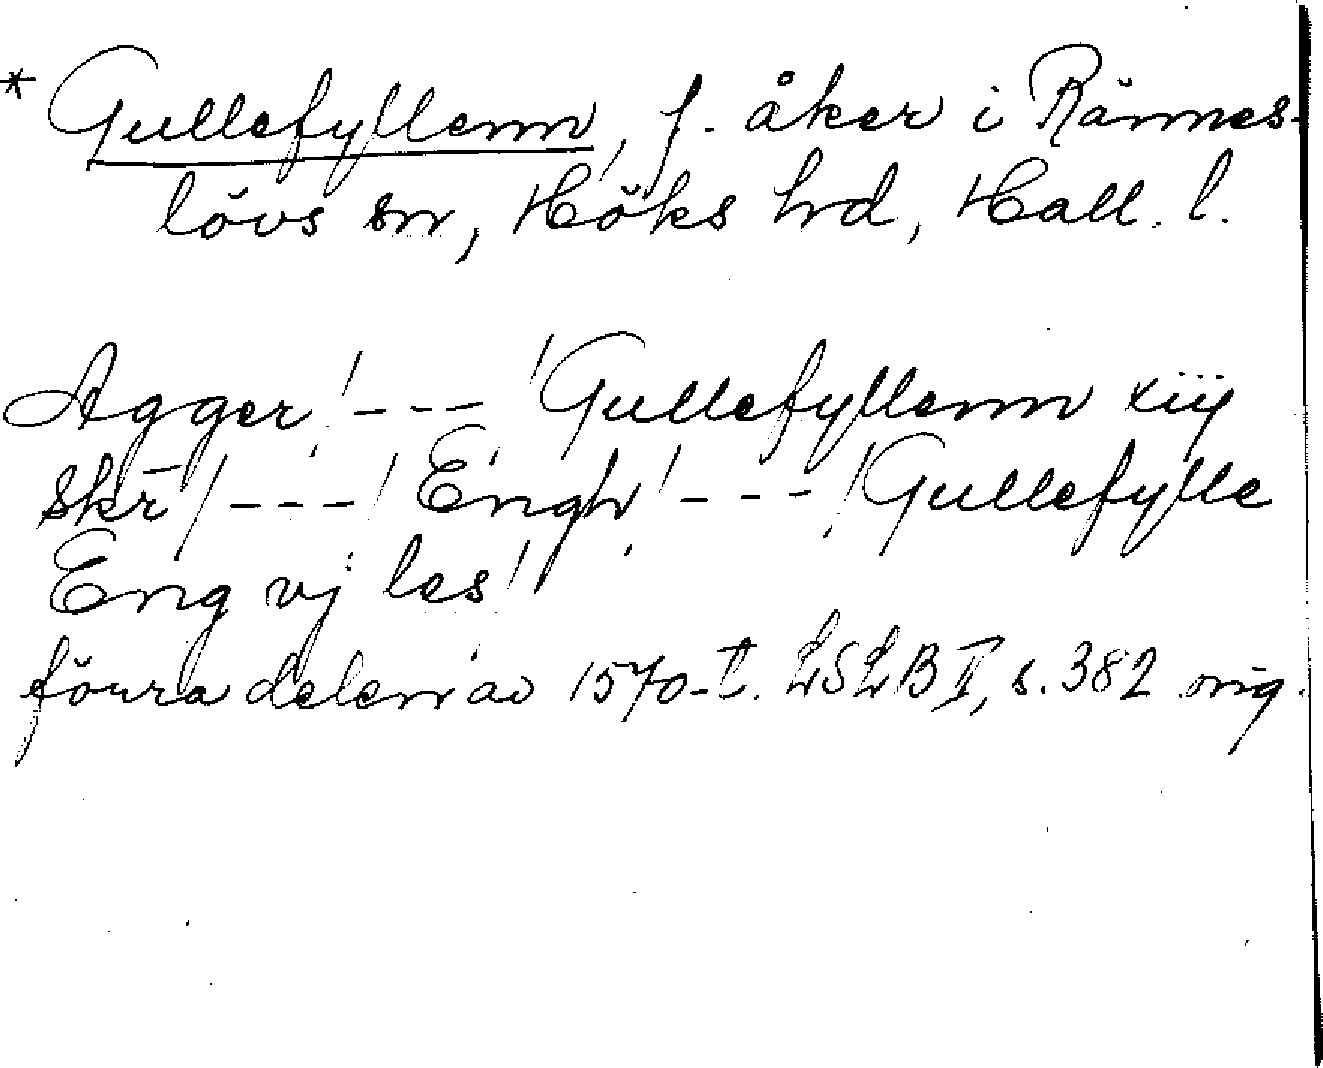 * Gullefyllenn, f. åker i Rännes-
lövs sn, Höks hrd, Hall. l.
Agger /---/ Gullefyllenn xiij
skr̄ /---/ Engh /---/ Gullefylle
Eng vj les
förra delen av 1570-t. LSLB II, s. 382 orig.